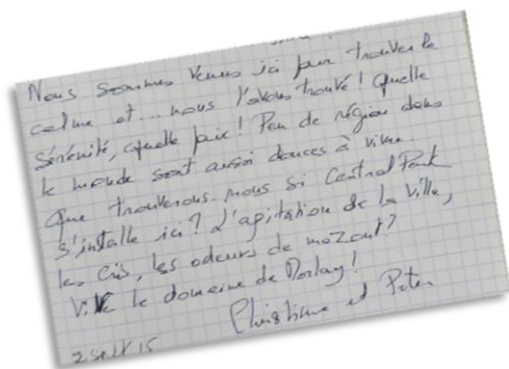 Nous sommes venus ici pour trouver le
calme et... nous l'avons trouvé! Quelle
sérénité, quelle paix! Peu de région dans
le monde sont aussi douces à vivre.
Que trouverons-nous si Central Park
s'installe ici? L'agitation de la ville,
les cris, les odeurs de mazout?
Vive le domaine de
Christiane et Peter
2 15